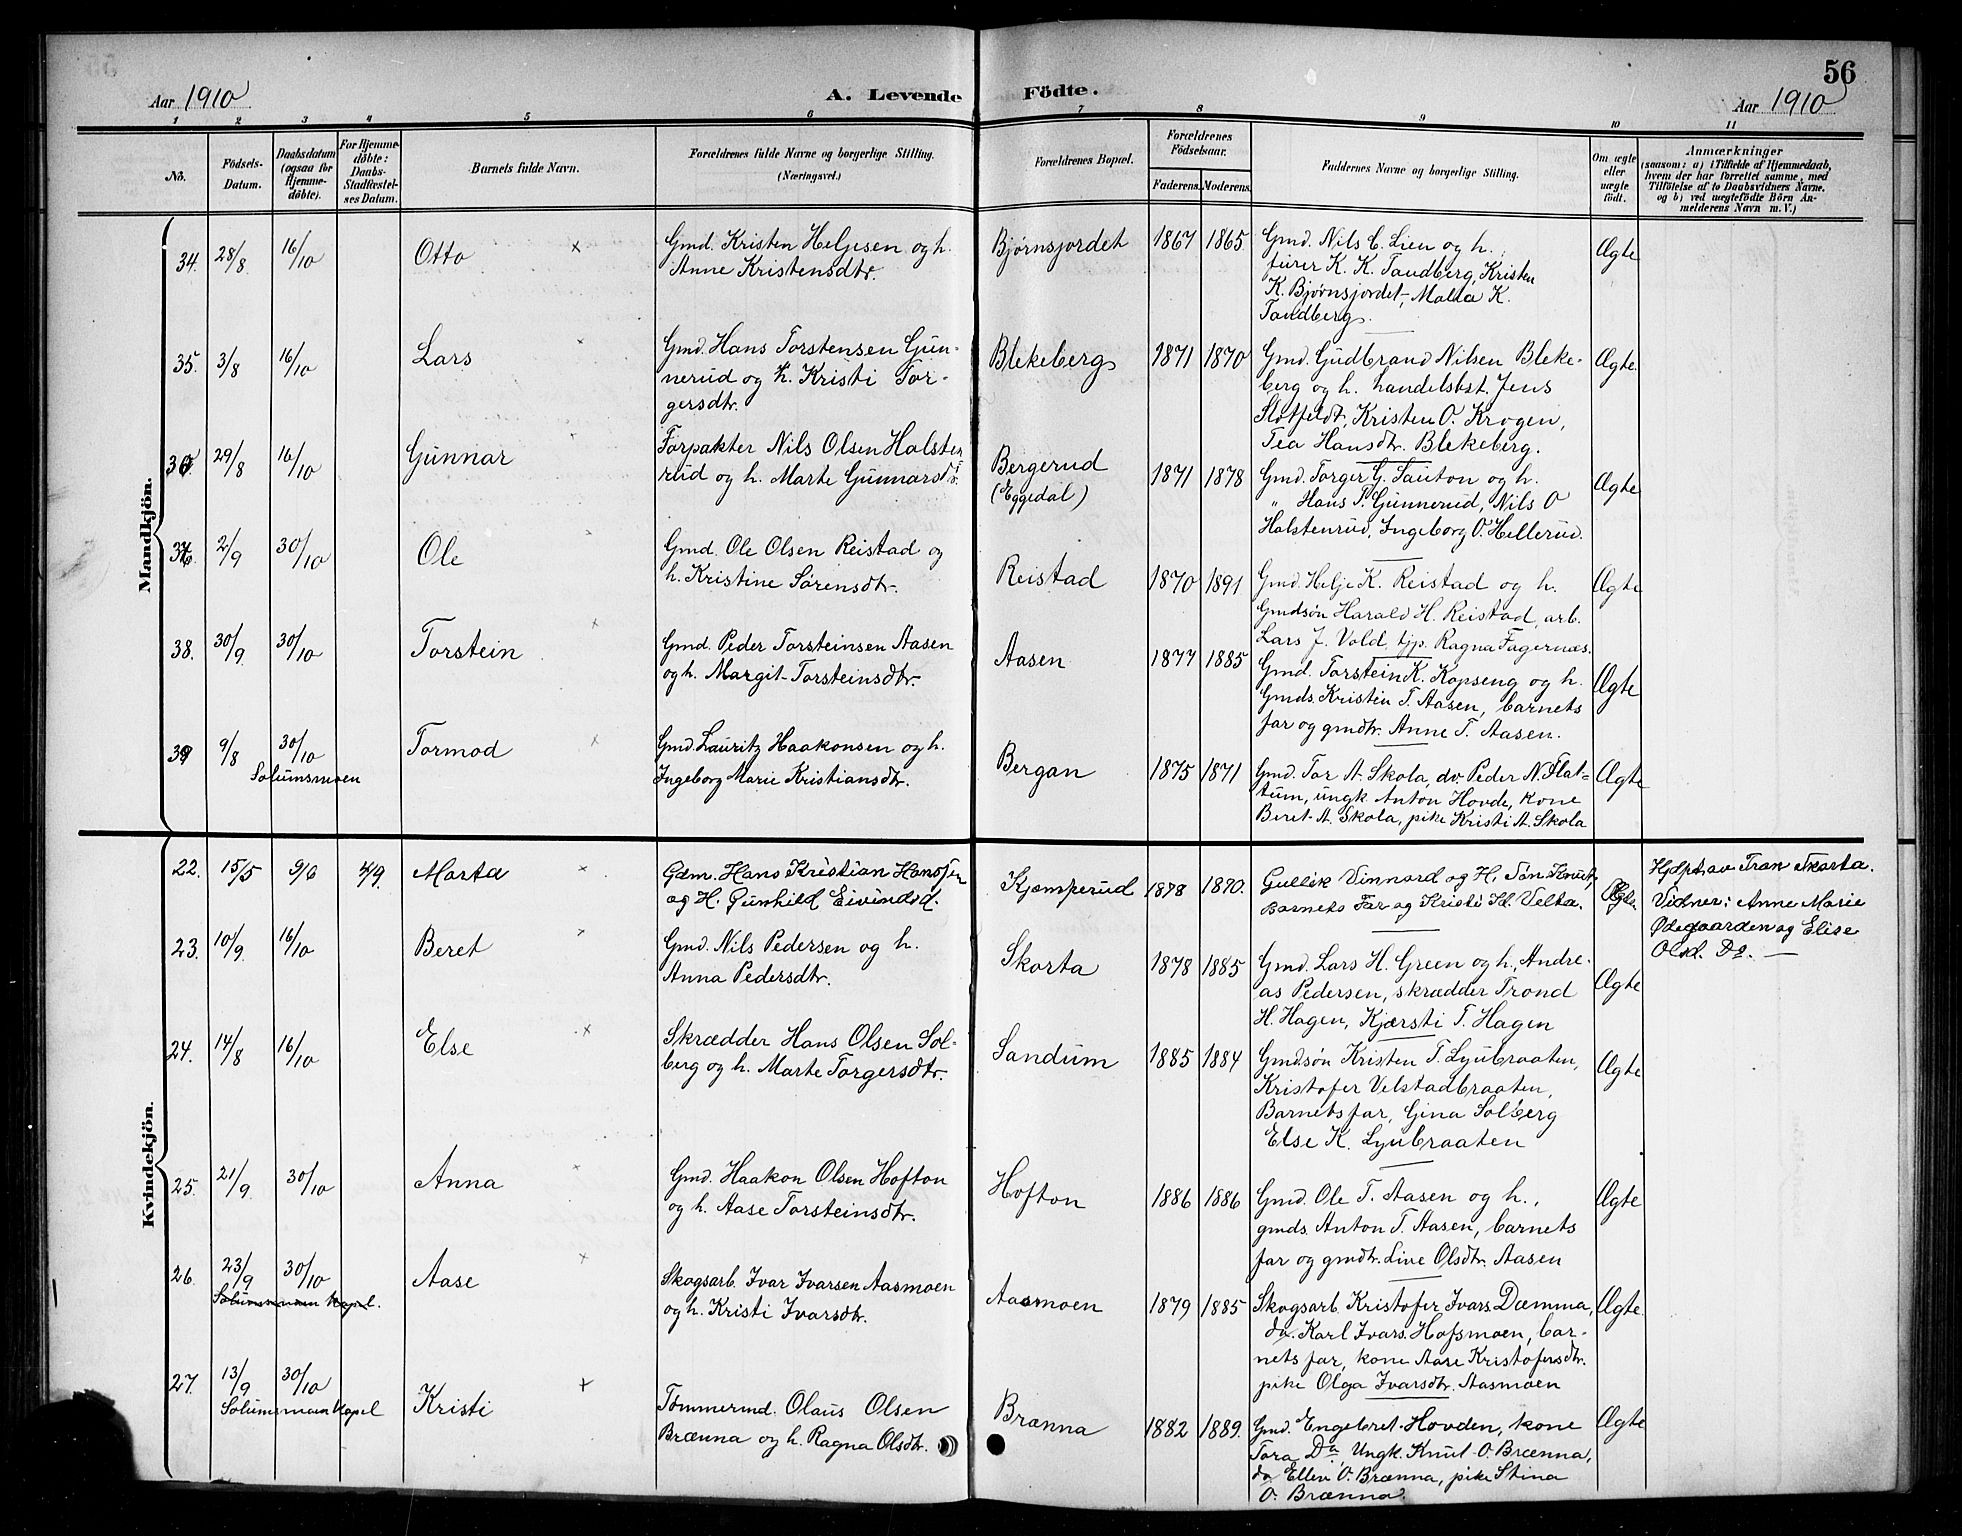 56
Aar 1910
A. Levende Födte.
Aar 1910
1 2 3 4 5 6 7 8 9 10 11
No.
Födsels-
Datum.
Daabsdatum
(ogsaa for
Hjemme-
döbte).
For Hjemme-
döbte:
Daabs-
Stadfæstel-
ses Datum.
Barnets fulde Navn.
Forældrenes fulde Navne og borgerlige Stilling.
(Næringsvei.)
Forældrenes Bopæl.
Forældrenes
Födselsaar.
Faderens. Moderens.
Faddernes Navne og borgerlige Stilling.
Om ægte
eller
uægte
født.
Anmærkninger
(saasom: a) i Tilfælde af Hjemmedaab,
hvem der har forrettet samme, med
Tilföielse af to Daabsvidners Navne.
og b) ved uægtefödte Börn An-
melderens Navn m. V.)
Mandkjön.
34. 28/8 16/10 Otto ×
Gmd. Kristen Helgesen og h.
Anne Kristensdtr.
Bjørnsjordet 1867 1865
Gmd. Nils C. Lien og h.,
furer K. K. Tandberg, Kristen
K. Bjørnsjordet, Malla K.
Tandberg.
Ægte
35. 3/8 16/10 Lars ×
Gmd. Hans Torstensen Gun-
nerud og h. Kristi Tor-
gersdtr.
Blekeberg 1871 1870
Gmd. Gudbrand Nilsen Bleke-
berg og h. handelsbst. Jens
Slotfeldt, Kristen O. Krogen,
Tea Hansdtr. Blekeberg.
Ægte.
36 29/8 16/10 Gunnar ×
Forpakter Nils Olsen Halsten
rud og h. Marte Gunnarsdtr.
Bergerud
(Eggedal)
1871 1878
Gmd. Torger G. Sauton og h.
" Hans T. Gunnerud, Nils O
Halstenrud, Ingeborg O. Hellerud.
Ægte
37 2/9 30/10 Ole ×
Gmd. Ole Olsen Reistad og
h. Kristine Sørensdtr.
Reistad 1870 1891
Gmd. Helje K. Reistad og h.
Gmdsøn Harald H. Reistad, arb.
Lars J. Vold tjp. Ragna Fagernæs.
Ægte
38. 30/9 30/10 Torstein ×
Gmd. Peder Torsteinsen Aasen
og h. Margit Torsteinsdtr.
Aasen 1877 1885
Gmd. Torstein K. Kopseng og h.
Gmds. Kristen T. Aasen, barnets
far og gmdtr. Anne T. Aasen.
Ægte
39 9/8 30/10 Tormod ×
Solumsmoen
Gmd. Lauritz Haakonsen og h.
Ingeborg Marie Kristiansdtr.
Bergan 1875 1871
Gmd. Tor A. Skola, do. Peder N. Flat-
tum, ungk Anton Hovde, kone
Beret A. Skola, pike Kristi A. Skola
Ægte
Kvindekjön.
22. 15/5 9/6 4/9. Marta ×
Gdm. Hans Kristian Hanssen
og H. Gunhild Eivindsd.
Kjæmperud 1878 1870.
Gullik Vinnard og H. Tøn Knut,
Barnets Far og Kristi H. Velta.
Ægte.
Hjdpt. av Tran Skarta.
Vidner: Anne Marie
Ødegaarden og Elise
Olsd. Do. —
23. 10/9 16/10 Beret ×
Gmd. Nils Pedersen og h.
Anna Pedersdtr.
Skarta 1878 1885
Gmd. Lars H. Green og h., Andre-
as Pedersen, skrædder Trond
H. Hagen, Kjærsti T. Hagen
Ægte
24. 14/8 16/10 Else ×
Skrædder Hans Olsen Sol-
berg og h. Marte Torgersdtr.
Sandum 1885 1884
Gmdsøn Kristen T. Lyubraaten,
Kristofer Velstadbraaten,
Barnets far, Gina Solberg
Else K. Lyubraaten
Ægte
25. 21/9. 30/10 Anna ×
Gmd. Haakon Olsen Hofton
og h. Aase Torsteinsdtr.
Hofton 1886 1886
Gmd. Ole T. Aasen og h.,
gmds. Anton T. Aasen, barnets
far og gmdtr. Live Olsdtr. Aasen
Ægte
26. 23/9 30/10 Aase ×
Solumsmoen Kapel.
Skogsarb. Ivar Ivarsen Aasmoen
og h. Kristi Ivarsdtr.
Aasmoen 1879 1885
Skogsarb. Kristofer Ivars. Dæmma,
do. Karl Ivars. Hofsmoen, bar-
nets far, kone Aase Kristofersdtr.
pike Olga Ivarsdtr. Aasmoen
Ægte.
27. 13/9 30/10 Kristi ×
Solumsmoen Kapel
Tømmermd. Olaus Olsen
Brænna og h. Ragna Olsdtr.
Brænna 1882 1889.
Gmd. Engebret Hovden, kone
Tora Do, Ungk. Knut O. Brænna,
do Ellen O. Brænna, pike Stina
O. Brænna.
Ægte